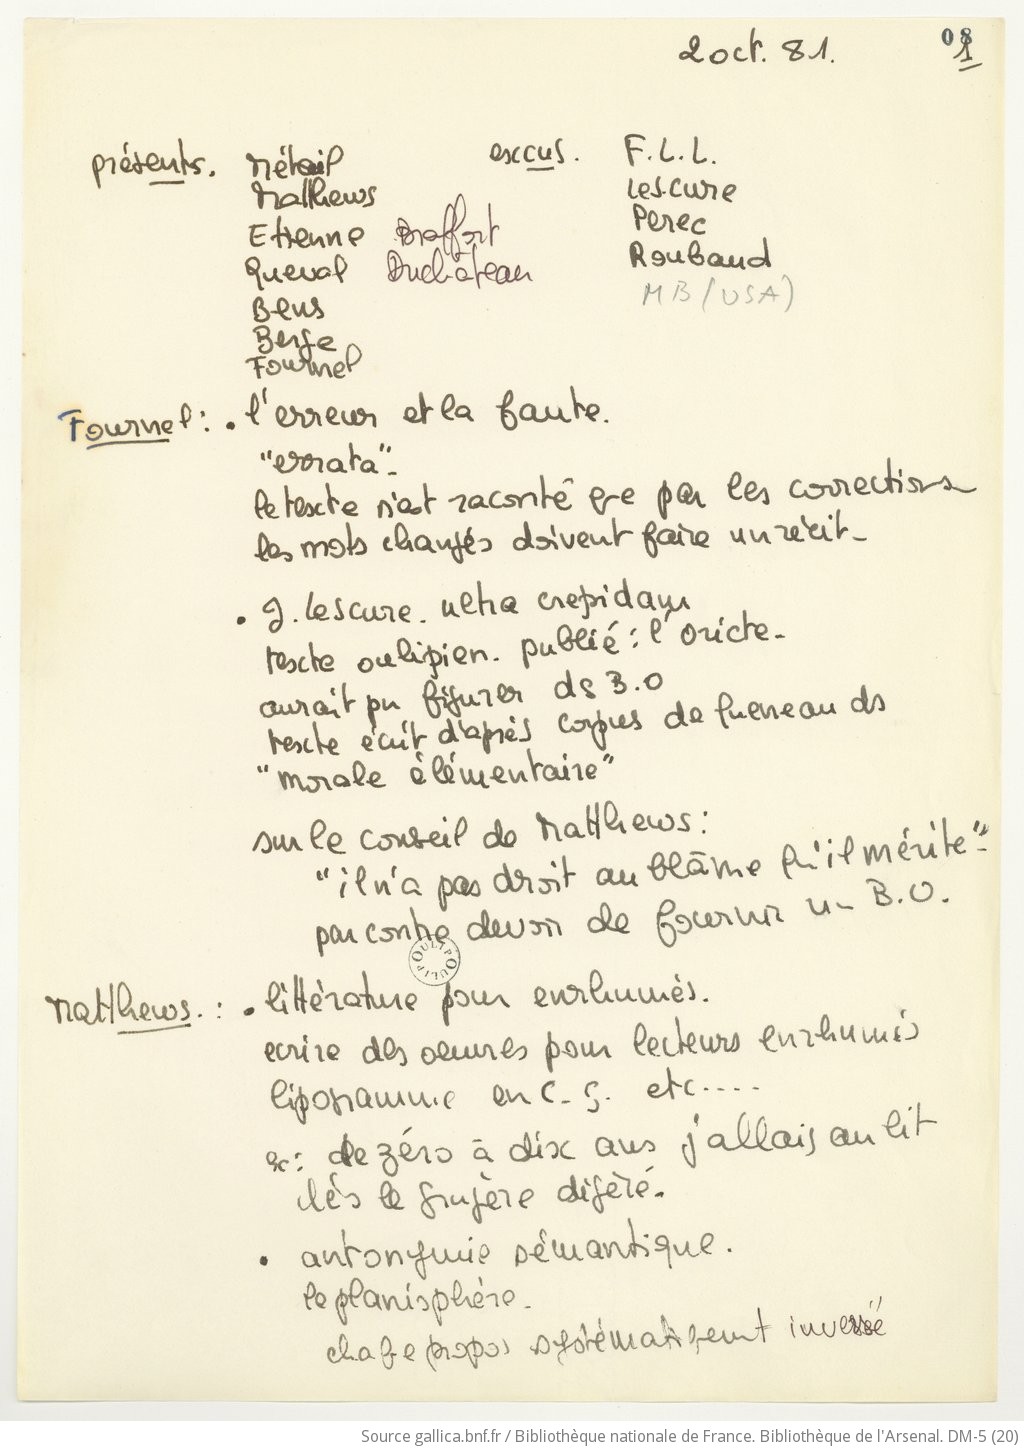 2 oct. 81.
08
1
présents. Métail
Matthews
Etienne Braffort
Queval Duchateau
Bens
Berge
Fournel
excus. F.L.L.
Lescure
Perec
Roubaud
MB (USA)
Fournel : • l'erreur et la faute.
"errata"-
le texte n'est raconté que par les corrections
les mots changés doivent faire un récit-
• J. Lescure. ultra crepidam
texte oulipien. publié : l'oricte-
aurait pu figurer ds B.O
texte écrit d'après corpus de Queneau ds
"morale élémentaire"
sur le conseil de Matthews :
"il n'a pas droit au blâme qu'il mérite"-
par contre devoir de fournir un B.O.
OULIPO OULIPO
Matthews. : • littérature pour enrhumés.
ecrire des oeuvres pour lecteurs enrhumés
lipogramme en c. g. etc....
ex : de zéro à dix ans j'allais au lit
dès le gruyère digéré.
• antonymie sémantique.
le planisphère.
chaque propos systématiqemt inversé
Source gallica.bnf.fr / Bibliothèque nationale de France. Bibliothèque de l'Arsenal. DM-5 (20)